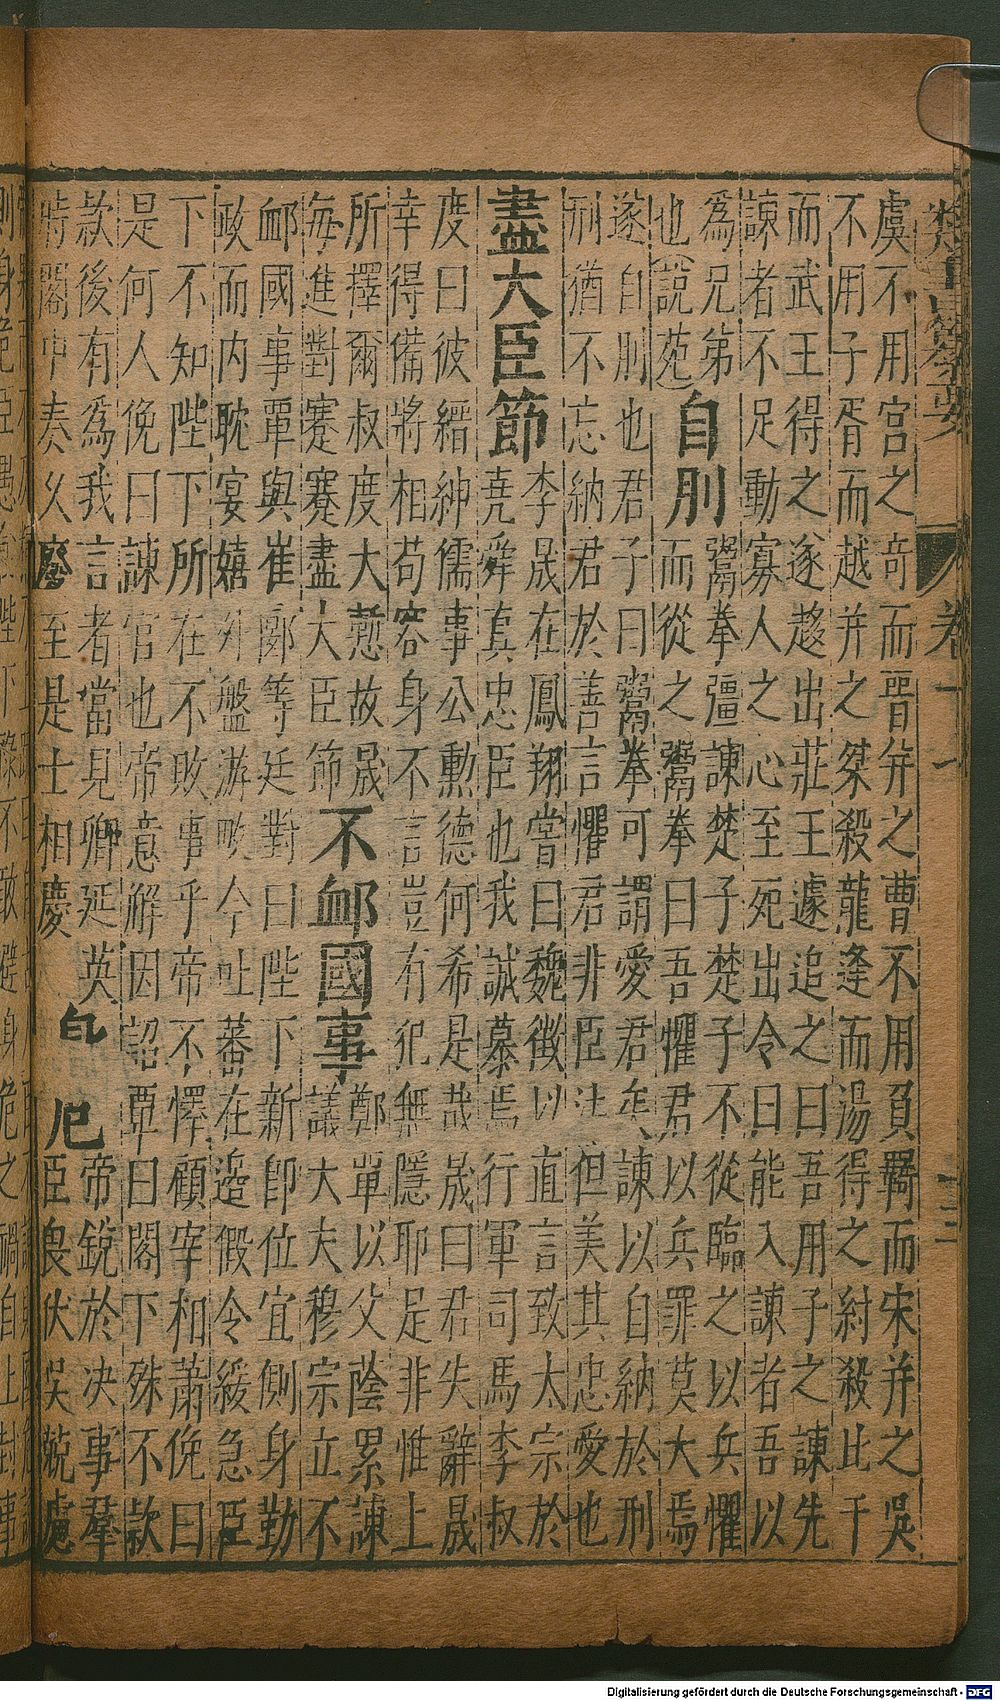 虞不用宮之奇而晉并之曹不用負羈而宋并之吳
不用子胥而越并之桀殺龍逢而湯得之紂殺比干
而武王得之遂趍出莊王遽追之曰吾用子之諫先
諫者不足動寡人之心至死出令曰能入諫者吾以
為兄弟
也(說苑)
自刖
鬻拳彊諫楚子楚子不從臨之以兵懼
而從之鬻拳曰吾懼君以兵罪莫大焉
遂自刖也君子曰鬻拳可謂愛君矣諫以自納於刑
刑猶不忘納君於善言懼君非臣法但美其忠愛也
盡大臣節
李晟在鳳翔嘗曰魏徵以直言致太宗於
堯舜真忠臣也我誠慕焉行軍司馬李叔
度曰彼縉紳儒事公勲德何希是哉晟曰君失辭晟
幸得備將相苟容身不言豈有犯無隱耶是非惟上
所擇爾叔度大慙故晟
每進對蹇蹇盡大臣節
不衈國事
鄭單以父蔭累諫
議大夫穆宗立不
衈國事覃與崔郾等廷對曰陛下新即位宜側身勤
政而内耽宴嬉外盤游畋今吐蕃在邊假令緩急臣
下不知陛下所在不敗事乎帝不懌顧宰相蕭俛曰
是何人俛曰諫官也帝意解因詔覃曰閤下殊不款
款後有為我言者當見卿延英
時閤中奏久廢至是士相慶
厄
帝銳於决事羣
臣畏伏吳兢慮
Digitalisierung gefördert durch die Deutsche Forschungsgemeinschaft - DFG